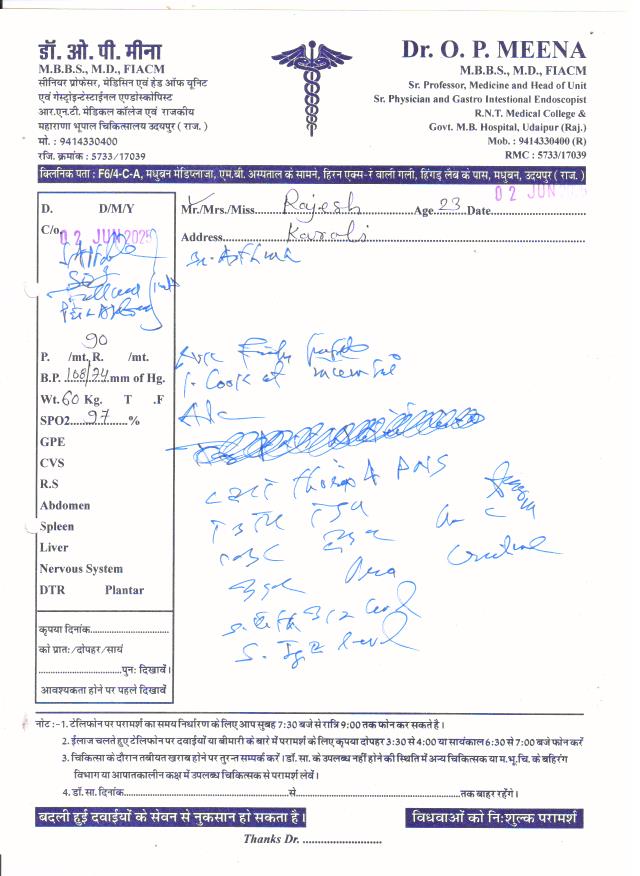 डॉ. ओ. पी. मीना
M.B.B.S., M.D., FIACM
सीनियर प्रोफेसर, मेडिसिन एवं हेड ऑफ यूनिट
एवं गेस्ट्रोइन्टेस्टाईनल एण्डोस्कोपिस्ट
आर.एन.टी. मेडिकल कॉलेज एवं राजकीय
महाराणा भूपाल चिकित्सालय उदयपुर ( राज.)
मो. : 9414330400
रजि. क्रमांक : 5733/17039
Dr. O. P. MEENA
M.B.B.S., M.D., FIACM
Sr. Professor, Medicine and Head of Unit
Sr. Physician and Gastro Intestional Endoscopist
R.N.T. Medical College &
Govt. M.B. Hospital, Udaipur (Raj.)
Mob. : 9414330400 (R)
RMC : 5733/17039
क्लिनिक पता : F6/4-C-A, मधुबन मेडिप्लाजा, एम.बी. अस्पताल के सामने, हिरन एक्स-रे वाली गली, हिंगड़ लेब के पास, मधुबन, उदयपुर ( राज.)
D. D/M/Y
C/o.
02 JUN 2025
Mr./Mrs./Miss Rajesh Age 23 Date 02 JUN
Address Karoli
Asthma
90
P. /mt. R. /mt.
B.P. 168/74 mm of Hg.
Wt. 60 Kg. T .F
SPO2 97 %
GPE
CVS
R.S
Abdomen
Spleen
Liver
Nervous System
DTR Plantar
PNS
T3 T4 TSH
CBC
S. B12 level
S. IgE level
कृपया दिनांक
को प्रातः/दोपहर/सायं
पुनः दिखावें।
आवश्यकता होने पर पहले दिखावें
नोट :-1. टेलिफोन पर परामर्श का समय निर्धारण के लिए आप सुबह 7:30 बजे से रात्रि 9:00 तक फोन कर सकते है।
2. ईलाज चलते हुए टेलिफोन पर दवाईयों या बीमारी के बारे में परामर्श के लिए कृपया दोपहर 3:30 से 4:00 या सायंकाल 6:30 से 7:00 बजे फोन करें
3. चिकित्सा के दौरान तबीयत खराब होने पर तुरन्त सम्पर्क करें। डॉ. सा. के उपलब्ध नहीं होने की स्थिति में अन्य चिकित्सक या म.भू.चि. के बहिरंग
विभाग या आपातकालीन कक्ष में उपलब्ध चिकित्सक से परामर्श लेवें।
4. डॉ. सा. दिनांक से तक बाहर रहेंगे।
बदली हुई दवाईयों के सेवन से नुकसान हो सकता है।
विधवाओं को निःशुल्क परामर्श
Thanks Dr.